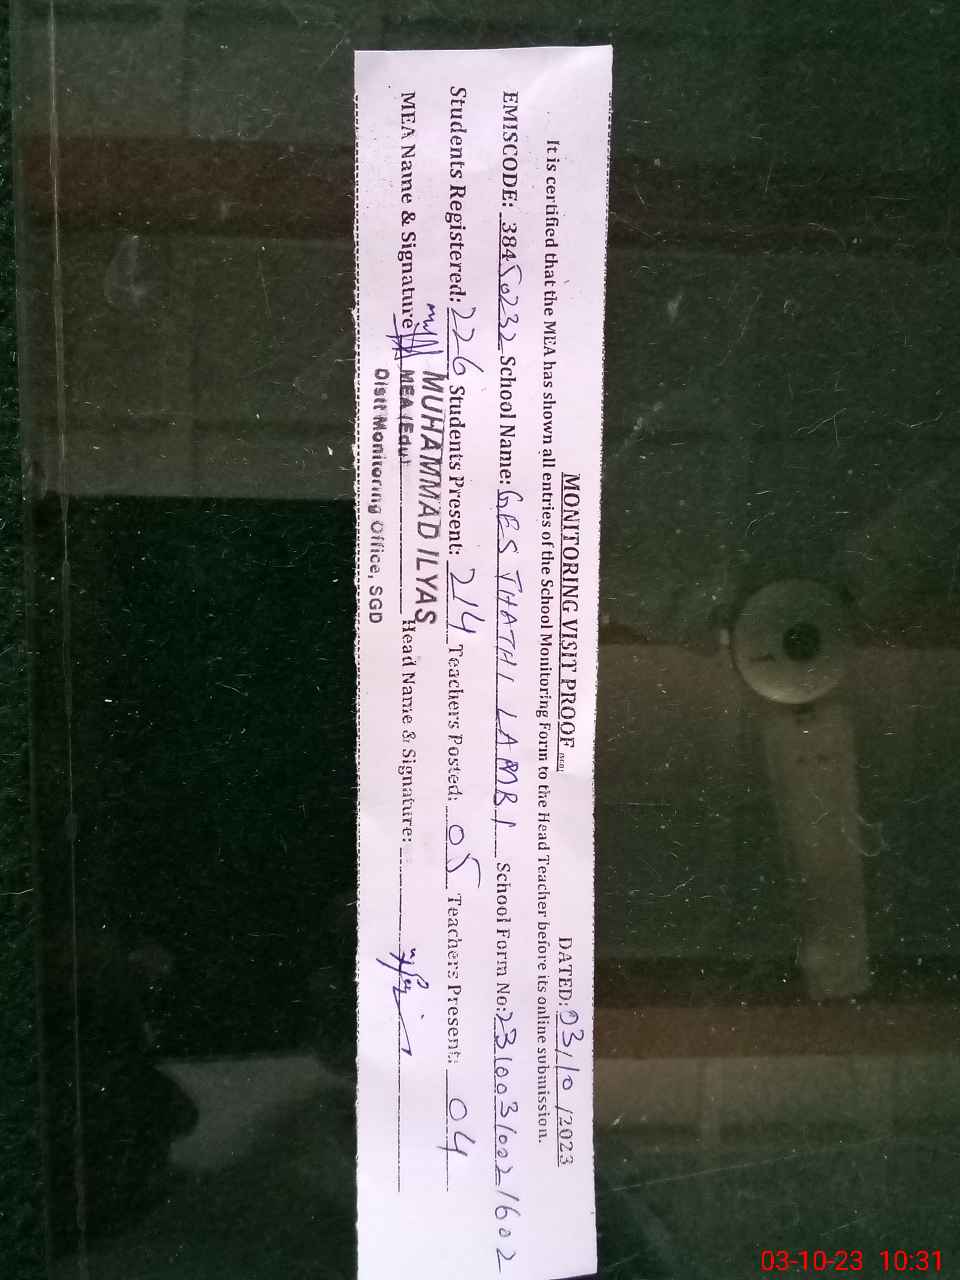 MONITORING VISIT PROOF
DATED: 03/10/2023
It is certified that the MEA has shown all entries of the School Monitoring Form to the Head Teacher before its online submission.
EMISCODE: 38450232 School Name: GES THATHI LAMBI School Form No: 23100310021602
Students Registered: 226 Students Present: 214 Teachers Posted: 05 Teachers Present: 04
MUHAMMAD ILYAS
MEA Name & Signature MEA (Edu) Head Name & Signature:
Distt Monitoring Office, SGD
03-10-23 10:31